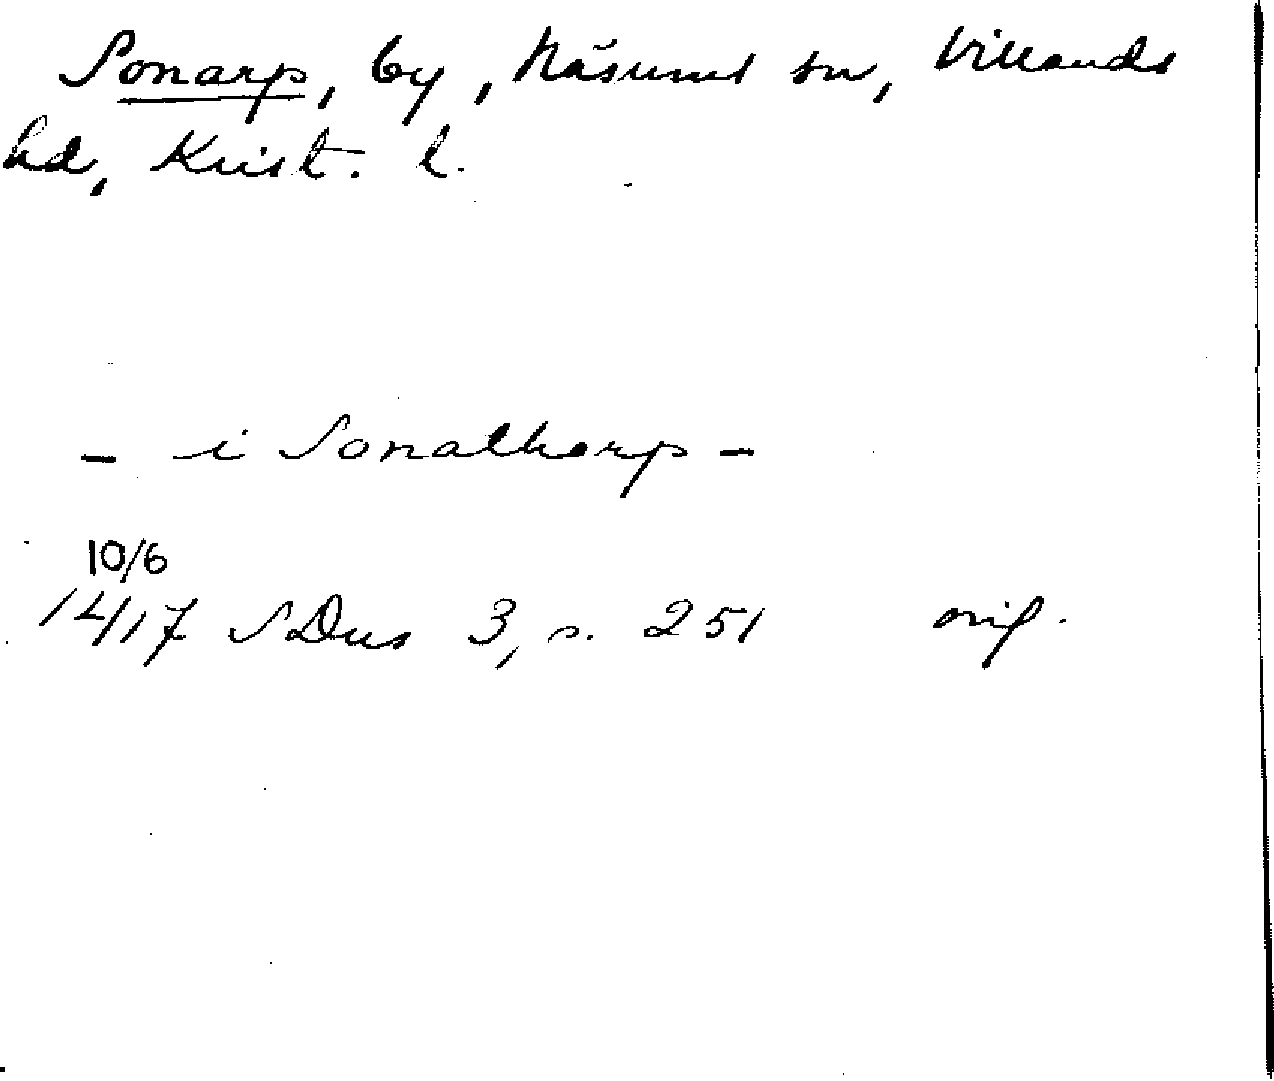 Sonarp, by, Näsums sn, Villands
hd, Krist. l.
- i Sonatharp -
10/6
1417 SDns 3, s. 251 orig.